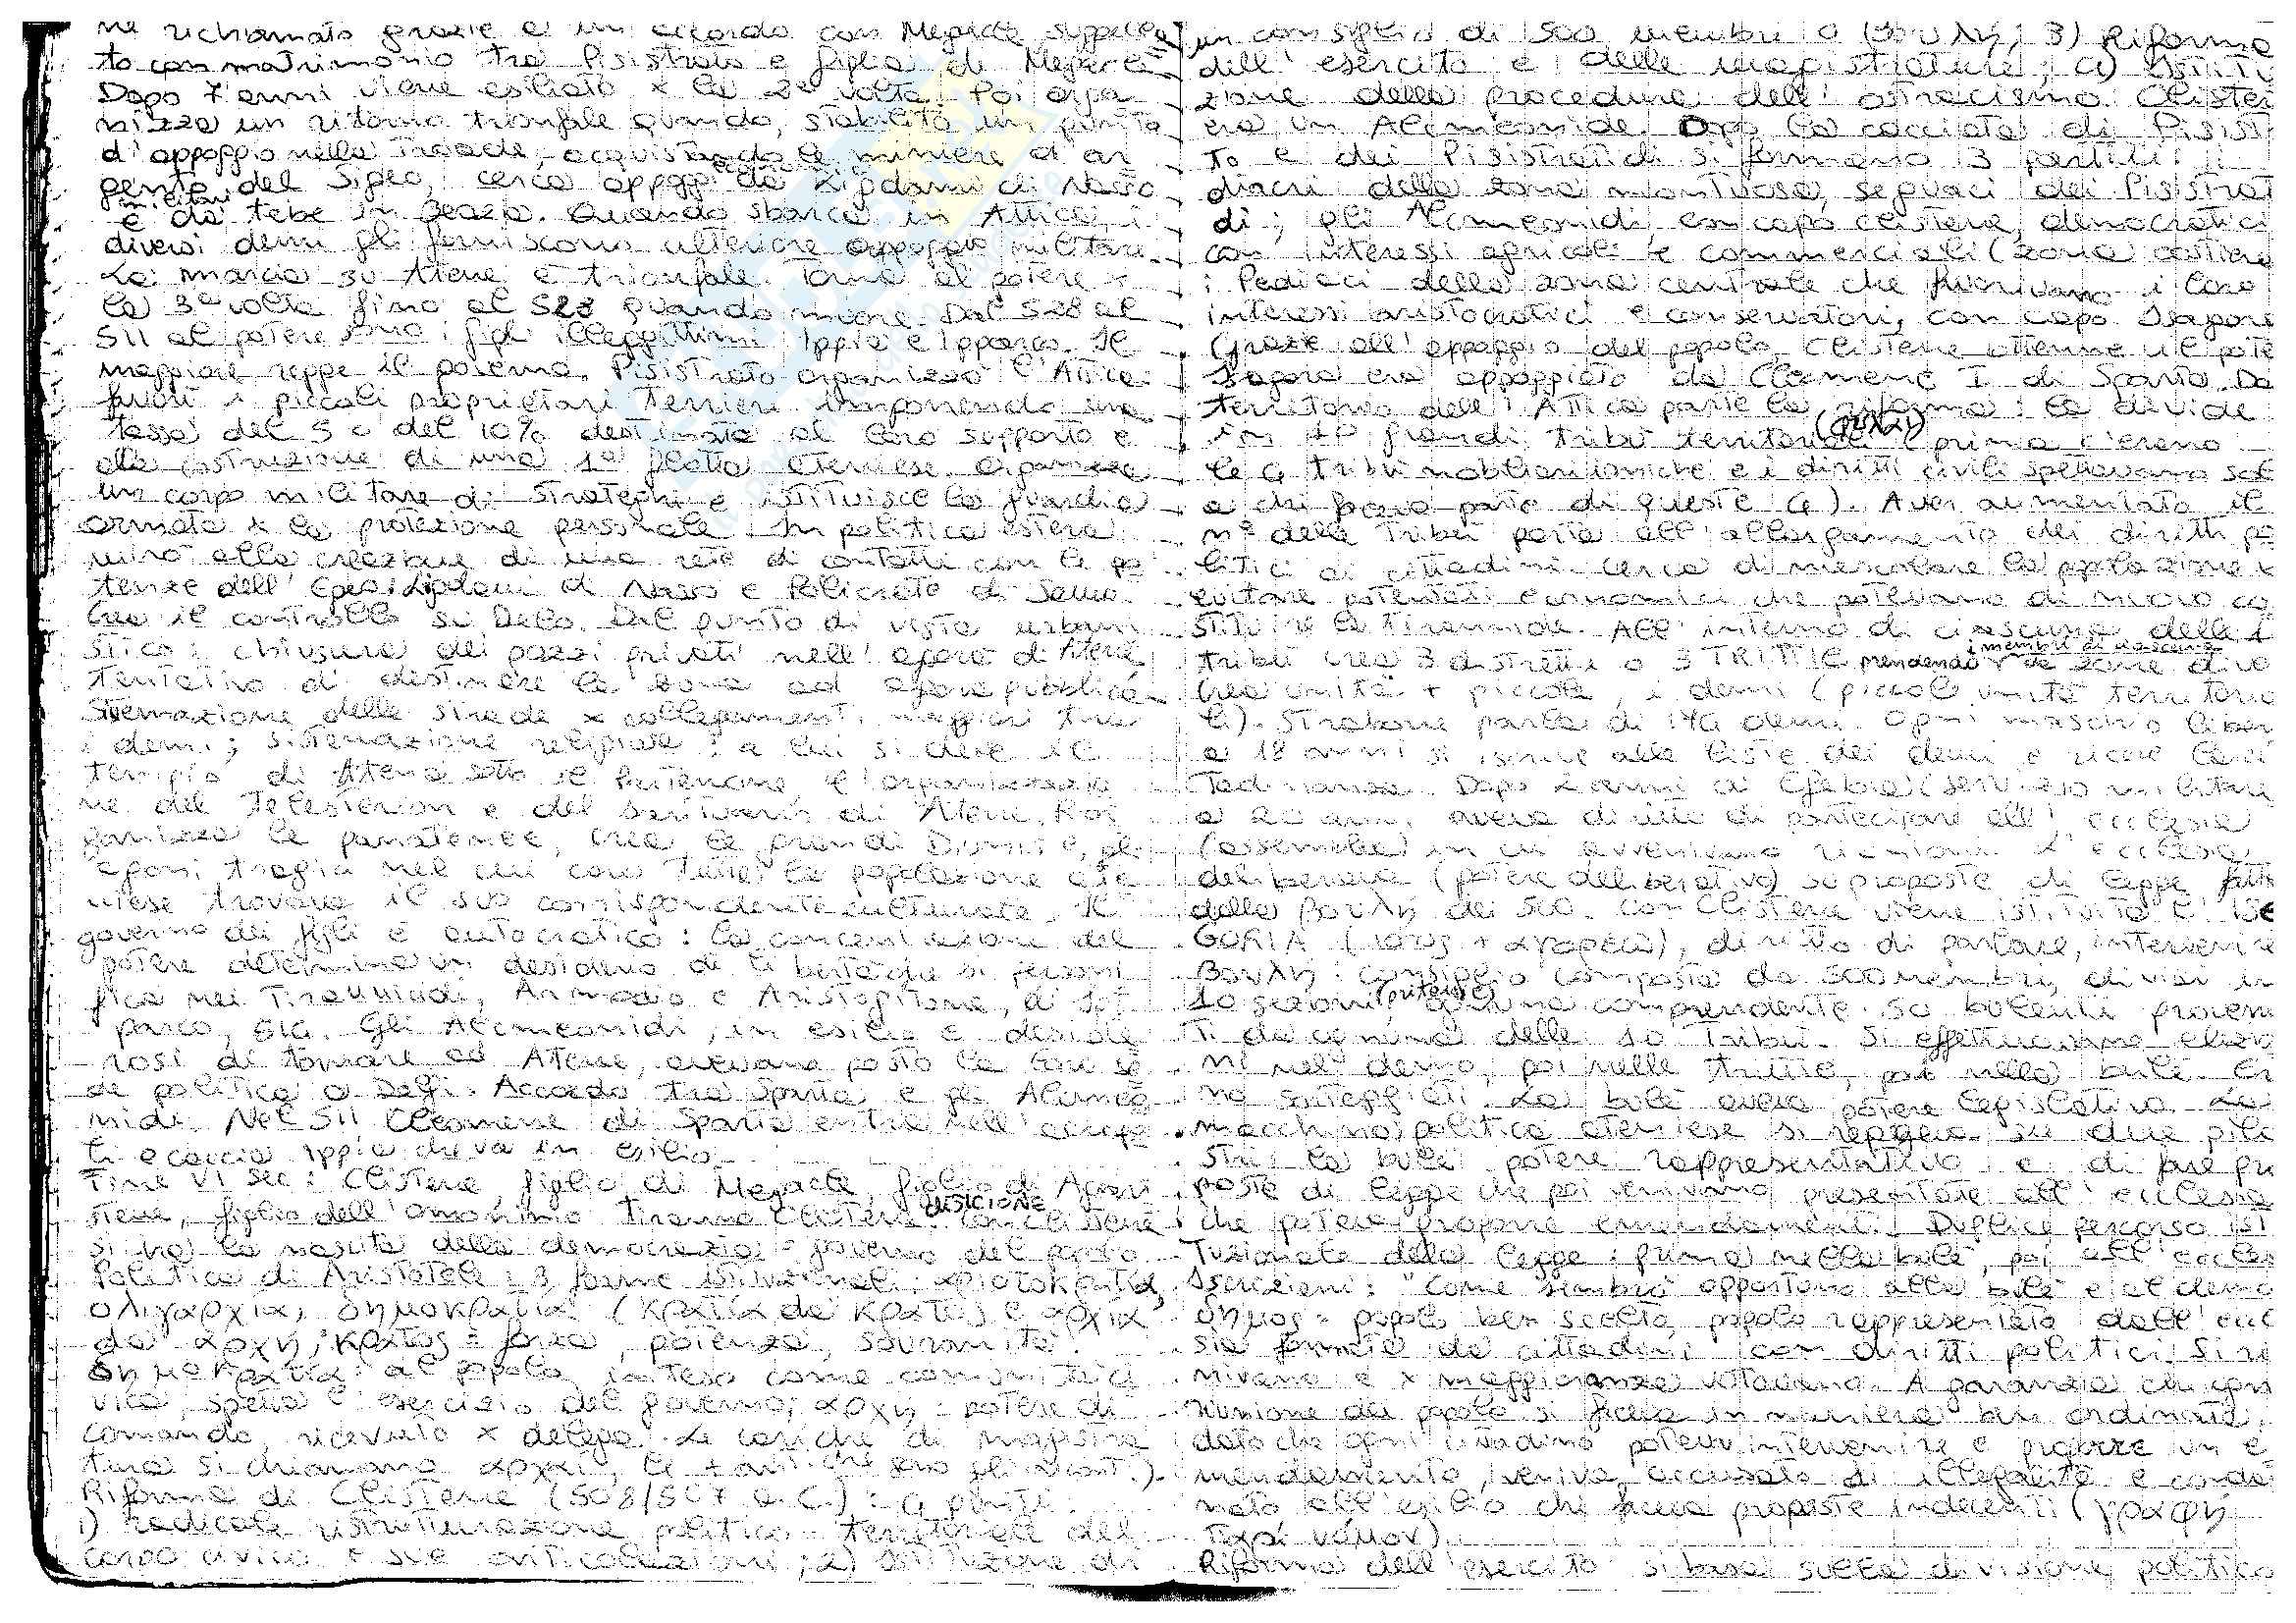 ne richiamato grazie a un accordo con Megacle suggella
to con matrimonio tra Pisistrato e figlia di Megacle
Dopo 7 anni viene esiliato x la 2ª volta. Poi orga
nizza un ritorno trionfale quando, stabilito un punto
d'appoggio nella Troade, acquistando le miniere d'ar
gento del Sigeo, cerca appoggi da Ligdami di Nasso
militari
e da tebe in Beozia. Quando sbarca in Attica, i
diversi demi gli forniscono ulteriore appoggio militare.
La marcia su Atene è trionfale. Torna al potere x
la 3ª volta fino al 528 quando muore. Dal 528 al
511 al potere sono i figli illegittimi Ippia e Ipparco. Il
maggiore regge il governo. Pisistrato organizzò l'Attica
favorì i piccoli proprietari terrieri imponendo una
tassa del 5 o del 10% destinata al loro supporto e
alla costruzione di una 1ª flotta ateniese. Organizza
un corpo militare di strateghi e istituisce la guardia
armata x la protezione personale. In politica estera
mirò alla creazione di una rete di contatti con le po
tenze dell'Egeo: Ligdami di Nasso e Policrate di Samo.
Crea il controllo su Delo. Dal punto di vista urbani
stico: chiusura dei pozzi privati nell'agorà di Atene
tentativo di destinare la zona ad agorà pubblica
sistemazione delle strade x collegamenti maggiori tra
i demi; sistemazione religiosa: a lui si deve il
tempio di Atena sotto il Partenone, l'organizzazio
ne del Telesterion e del santuario di Atene. Rior
ganizza le panatenee, crea le grandi Dionisie, gli
agoni tragici nel cui coro tutta la popolazione ate
niese trovava il suo corrispondente culturale. Il
governo dei figli è autocratico: la concentrazione del
potere determina un desiderio di libertà che si personi
fica nei Tirannicidi, Armodio e Aristogitone, di Ip
parco, 514. Gli Alcmeonidi, in esilio e deside
rosi di tornare ad Atene, avevano posto la loro se
de politica a Delfi. Accordo tra Sparta e gli Alcmeo
nidi. Nel 511 Cleomene di Sparta entra nell'acropo
li e caccia Ippia che va in esilio.
Fine VI sec: Clistene, figlio di Megacle, figlio di Agari
di SICIONE
stene, figlia dell'omonimo tiranno Clistene. Con Clistene
si ha la nascita della democrazia = governo del popolo
Politica di Aristotele: 3 forme istituzionali: αριστοκρατία,
ολιγαρχία, δημοκρατία (κρατία da κρατέω) e αρχία
da αρχη; κρατος = forza, potenza, sovranità.
δημοκρατία: al popolo, inteso come comunità ci
vica, spetta l'esercizio del governo; αρχη: potere di
comando, ricevuto x delega. Le cariche di magistra
tura si chiamano αρχαί, le + antiche sono gli arconti.).
Riforma di Clistene (508/507 a.C.): 4 punti
1) radicale ristrutturazione politico-territoriale del
corpo civico e sue articolazioni; 2) istituzione di
un consiglio di 500 membri o (βουλη); 3) Riforma
dell'esercito e delle magistrature; 4) istitu
zione della procedura dell'ostracismo. Cliste
era un Alcmeonide. Dopo la cacciata di Pisist
to e dei Pisistratidi si formano 3 partiti: i
diacri della zona montuosa, seguaci dei Pisistrat
di; gli Alcmeonidi, con capo clistene, democratici
con interessi agricoli e commerciali (zona costiera
i Pediaci della zona centrale che favorivano i loro
interessi aristocratici e conservatori, con capo Isagora
Grazie all'appoggio del popolo, Clistene ottenne il pote
Isagora era appoggiato da Cleomene I di Sparta. Da
territorio dell'Attica parte la riforma: la divide
(φυλαι)
in 10 grandi tribù territoriali (prima c'erano
le 4 tribù nobiliari ioniche e i diritti civili spettavano sol
a chi faceva parte di queste 4). Aver aumentato il
n° delle tribù porta all'allargamento dei diritti po
litici ai cittadini. Cerca di mescolare la popolazione x
evitare potentati economici che potevano di nuovo co
stituire la tirannide. All'interno di ciascuna delle 1
i membri di ciascuna
tribù crea 3 distretti o 3 TRITTIE prendendo da zone dive
Crea unità + piccole, i demi (piccole unità territoria
li). Strabone parla di 174 demi. Ogni maschio liber
a 18 anni si iscrive alle liste dei demi e riceve la ci
ttadinanza. Dopo 2 anni di Efebia (servizio militare
a 20 anni, aveva diritto di partecipare all'ecclesia
(assemblea) in cui avvenivano riunioni. L'ecclesia
deliberava (potere deliberativo) su proposte di legge fatte
dalla βουλη dei 500. Con Clistene viene istituita l'ISE
GORIA (ισος + αγορευω), diritto di parlare, intervenire
βουλη: consiglio composto da 500 membri, divisi in
(pritanie)
10 sezioni, ognuna comprendente 50 buleuti proveni
ti da ognuna delle 10 tribù. Si effettuavano elezio
ni nel demo, poi nelle trittie, poi nella bulé. Er
no sorteggiati. La bulé aveva potere legislativo. La
macchina politica ateniese si reggeva su due pila
stri: la bulé: potere rappresentativo e di fare pro
poste di legge che poi venivano presentate all'ecclesia
che poteva proporre emendamenti. Duplice percorso isti
tuzionale della legge: prima nella bulé, poi all'eccles
Iscrizioni: "Come sembrò opportuno alla bulé e al demo
δημος = popolo ben scelto, popolo rappresentato dall'eccl
sia formata da cittadini con diritti politici. Si riu
nivano e x maggioranza votavano. A garanzia che ogni
riunione del popolo si facesse in maniera ben ordinata,
dato che ogni cittadino poteva intervenire e proporre un e
mendamento, veniva accusato di illegalità e conda
nato all'esilio chi faceva proposte indecenti (γραφη
παρά νόμον).
Riforma dell'esercito: si basa sulla divisione politico